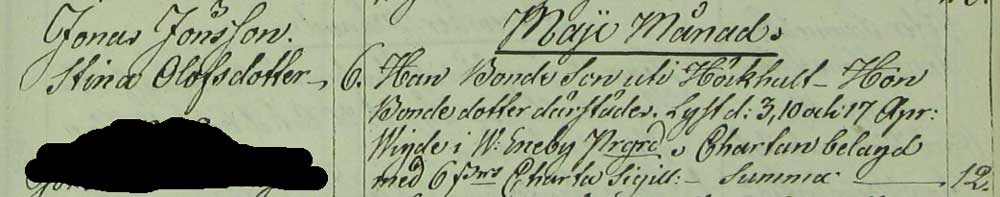 Maji Månad.
Jonas Jönsson.
Stina Olofsdotter, 6. Han Bonde Son uti Höckhult – Hon
Bonde dotter därstädes. Lyst d: 3, 10 och 17 Apr:
Wigde i W: Eneby Prgrd, Chartan belagd
med 6 Charta Sigill: – Summa — 12.